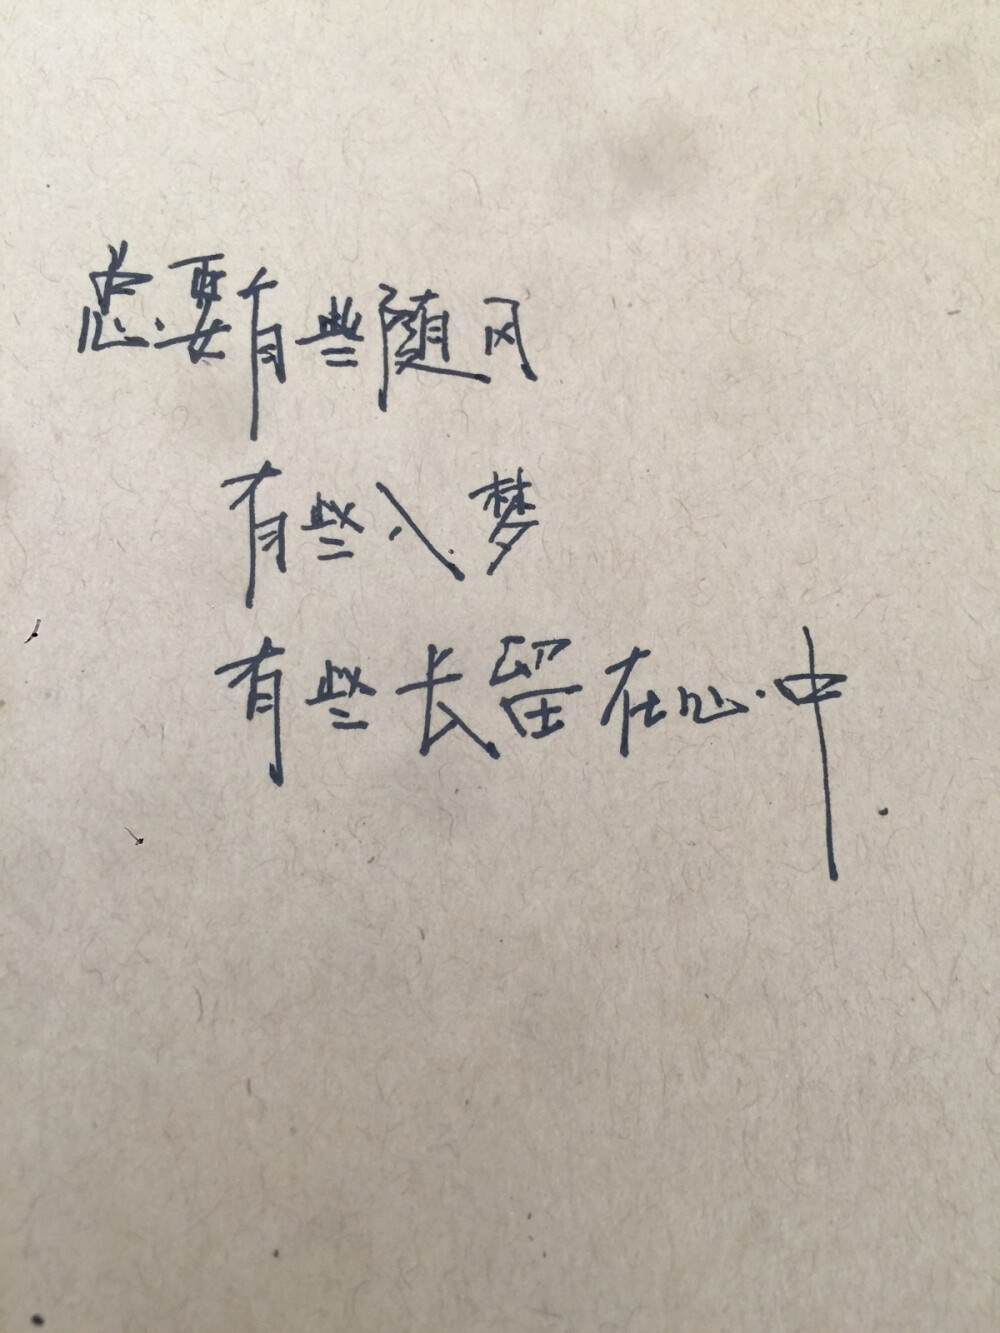 总要有些随风
有些入梦
有些长留在心中